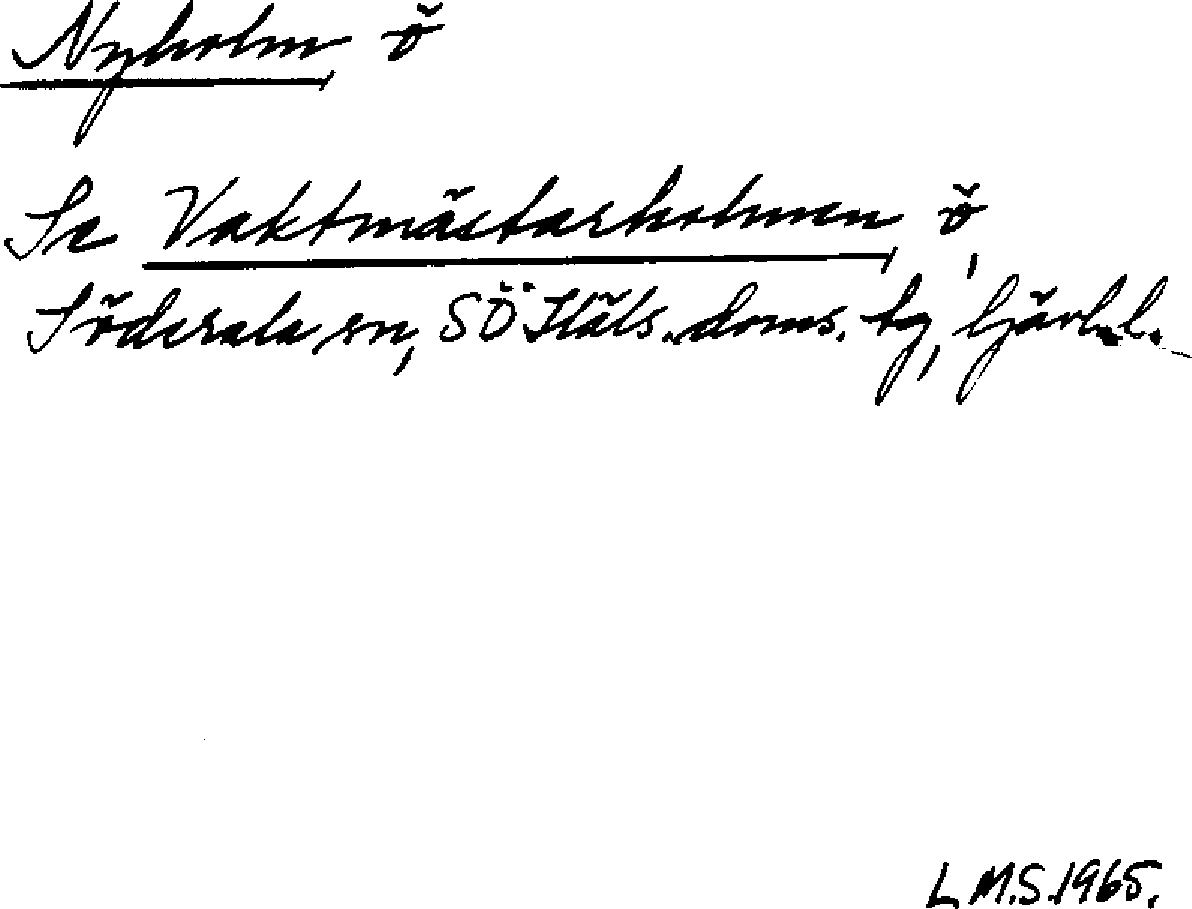 Nyholm ö
Se Vaktmästarholmen ö,
Söderala sn, SÖ Häls. doms. tg, Gävleb. l.
L.M.S. 1965.